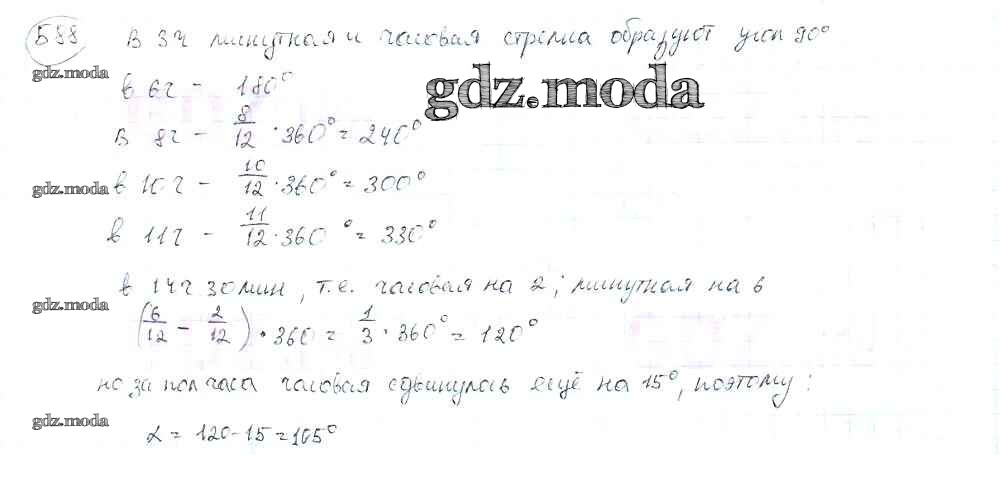 588 В 3ч минутная и часовая стрелка образуют угол 90°
gdz.moda
в 6ч - 180°
gdz.moda
в 8ч - 8/12 · 360° = 240°
gdz.moda
в 10ч - 10/12 · 360° = 300°
в 11ч - 11/12 · 360° = 330°
в 14ч 30 мин, т.е. часовая на 2; минутная на 6
gdz.moda
(6/12 - 2/12) · 360 = 1/3 · 360° = 120°
но за пол часа часовая сдвинулась ещё на 15°, поэтому:
gdz.moda
α = 120-15=105°